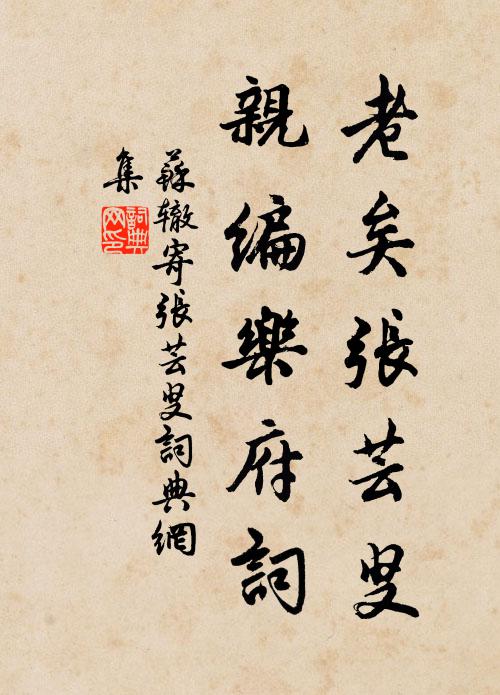 老矣張芸叟
親編樂府詞
蘇辙寄張芸叟詞典網
集
詞典網印